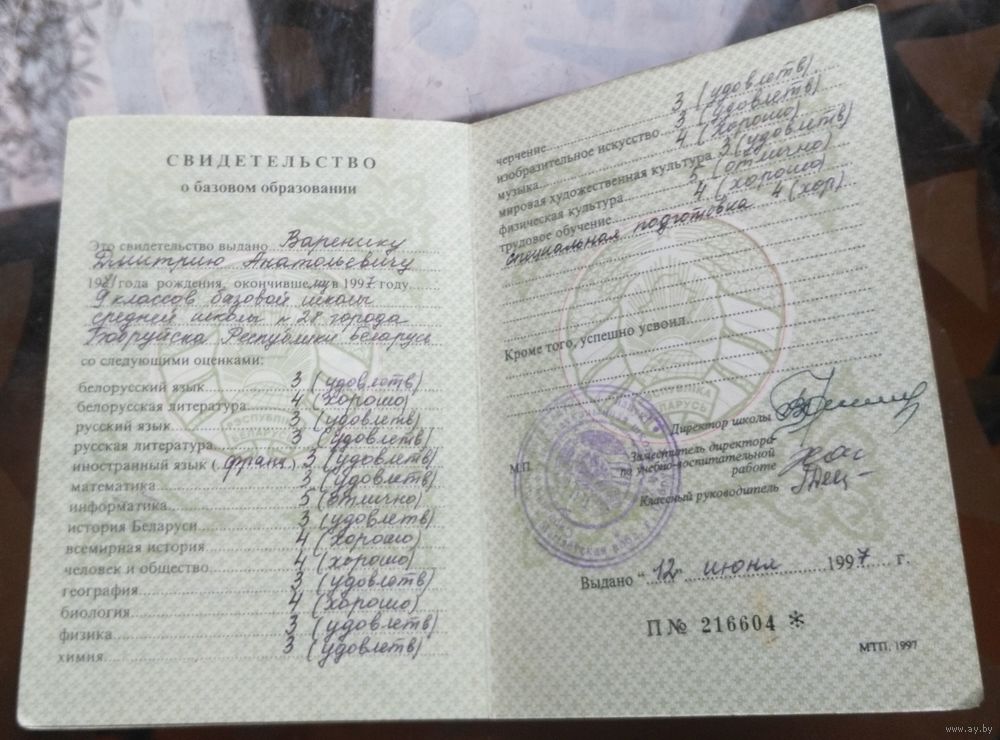 СВИДЕТЕЛЬСТВО
о базовом образовании
Это свидетельство выдано Варенику
Дмитрию Анатольевичу
1981 года рождения, окончившему в 1997 году.
9 классов базовой школы
средней школы № 28 города
Бобруйска Республики Беларусь
со следующими оценками:
белорусский язык 3 (удовлетв)
белорусская литература 4 (хорошо)
русский язык 3 (удовлетв)
русская литература 3 (удовлетв)
иностранный язык (франц.) 3 (удовлетв)
математика 3 (удовлетв)
информатика 5 (отлично)
история Беларуси 3 (удовлетв)
всемирная история 4 (хорошо)
человек и общество 4 (хорошо)
география 3 (удовлетв)
биология 4 (хорошо)
физика 3 (удовлетв)
химия 3 (удовлетв)
черчение 3 (удовлетв)
изобразительное искусство 3 (удовлетв)
музыка 4 (хорошо)
мировая художественная культура 3 (удовлетв)
физическая культура 5 (отлично)
трудовое обучение 4 (хорошо)
специальная подготовка 4 (хор)
Кроме того, успешно усвоил
Директор школы
М.П.
Заместитель директора
по учебно-воспитательной
работе
Классный руководитель
Выдано "12" июня 1997 г.
П № 216604 *
МТП. 1997
www.ay.by